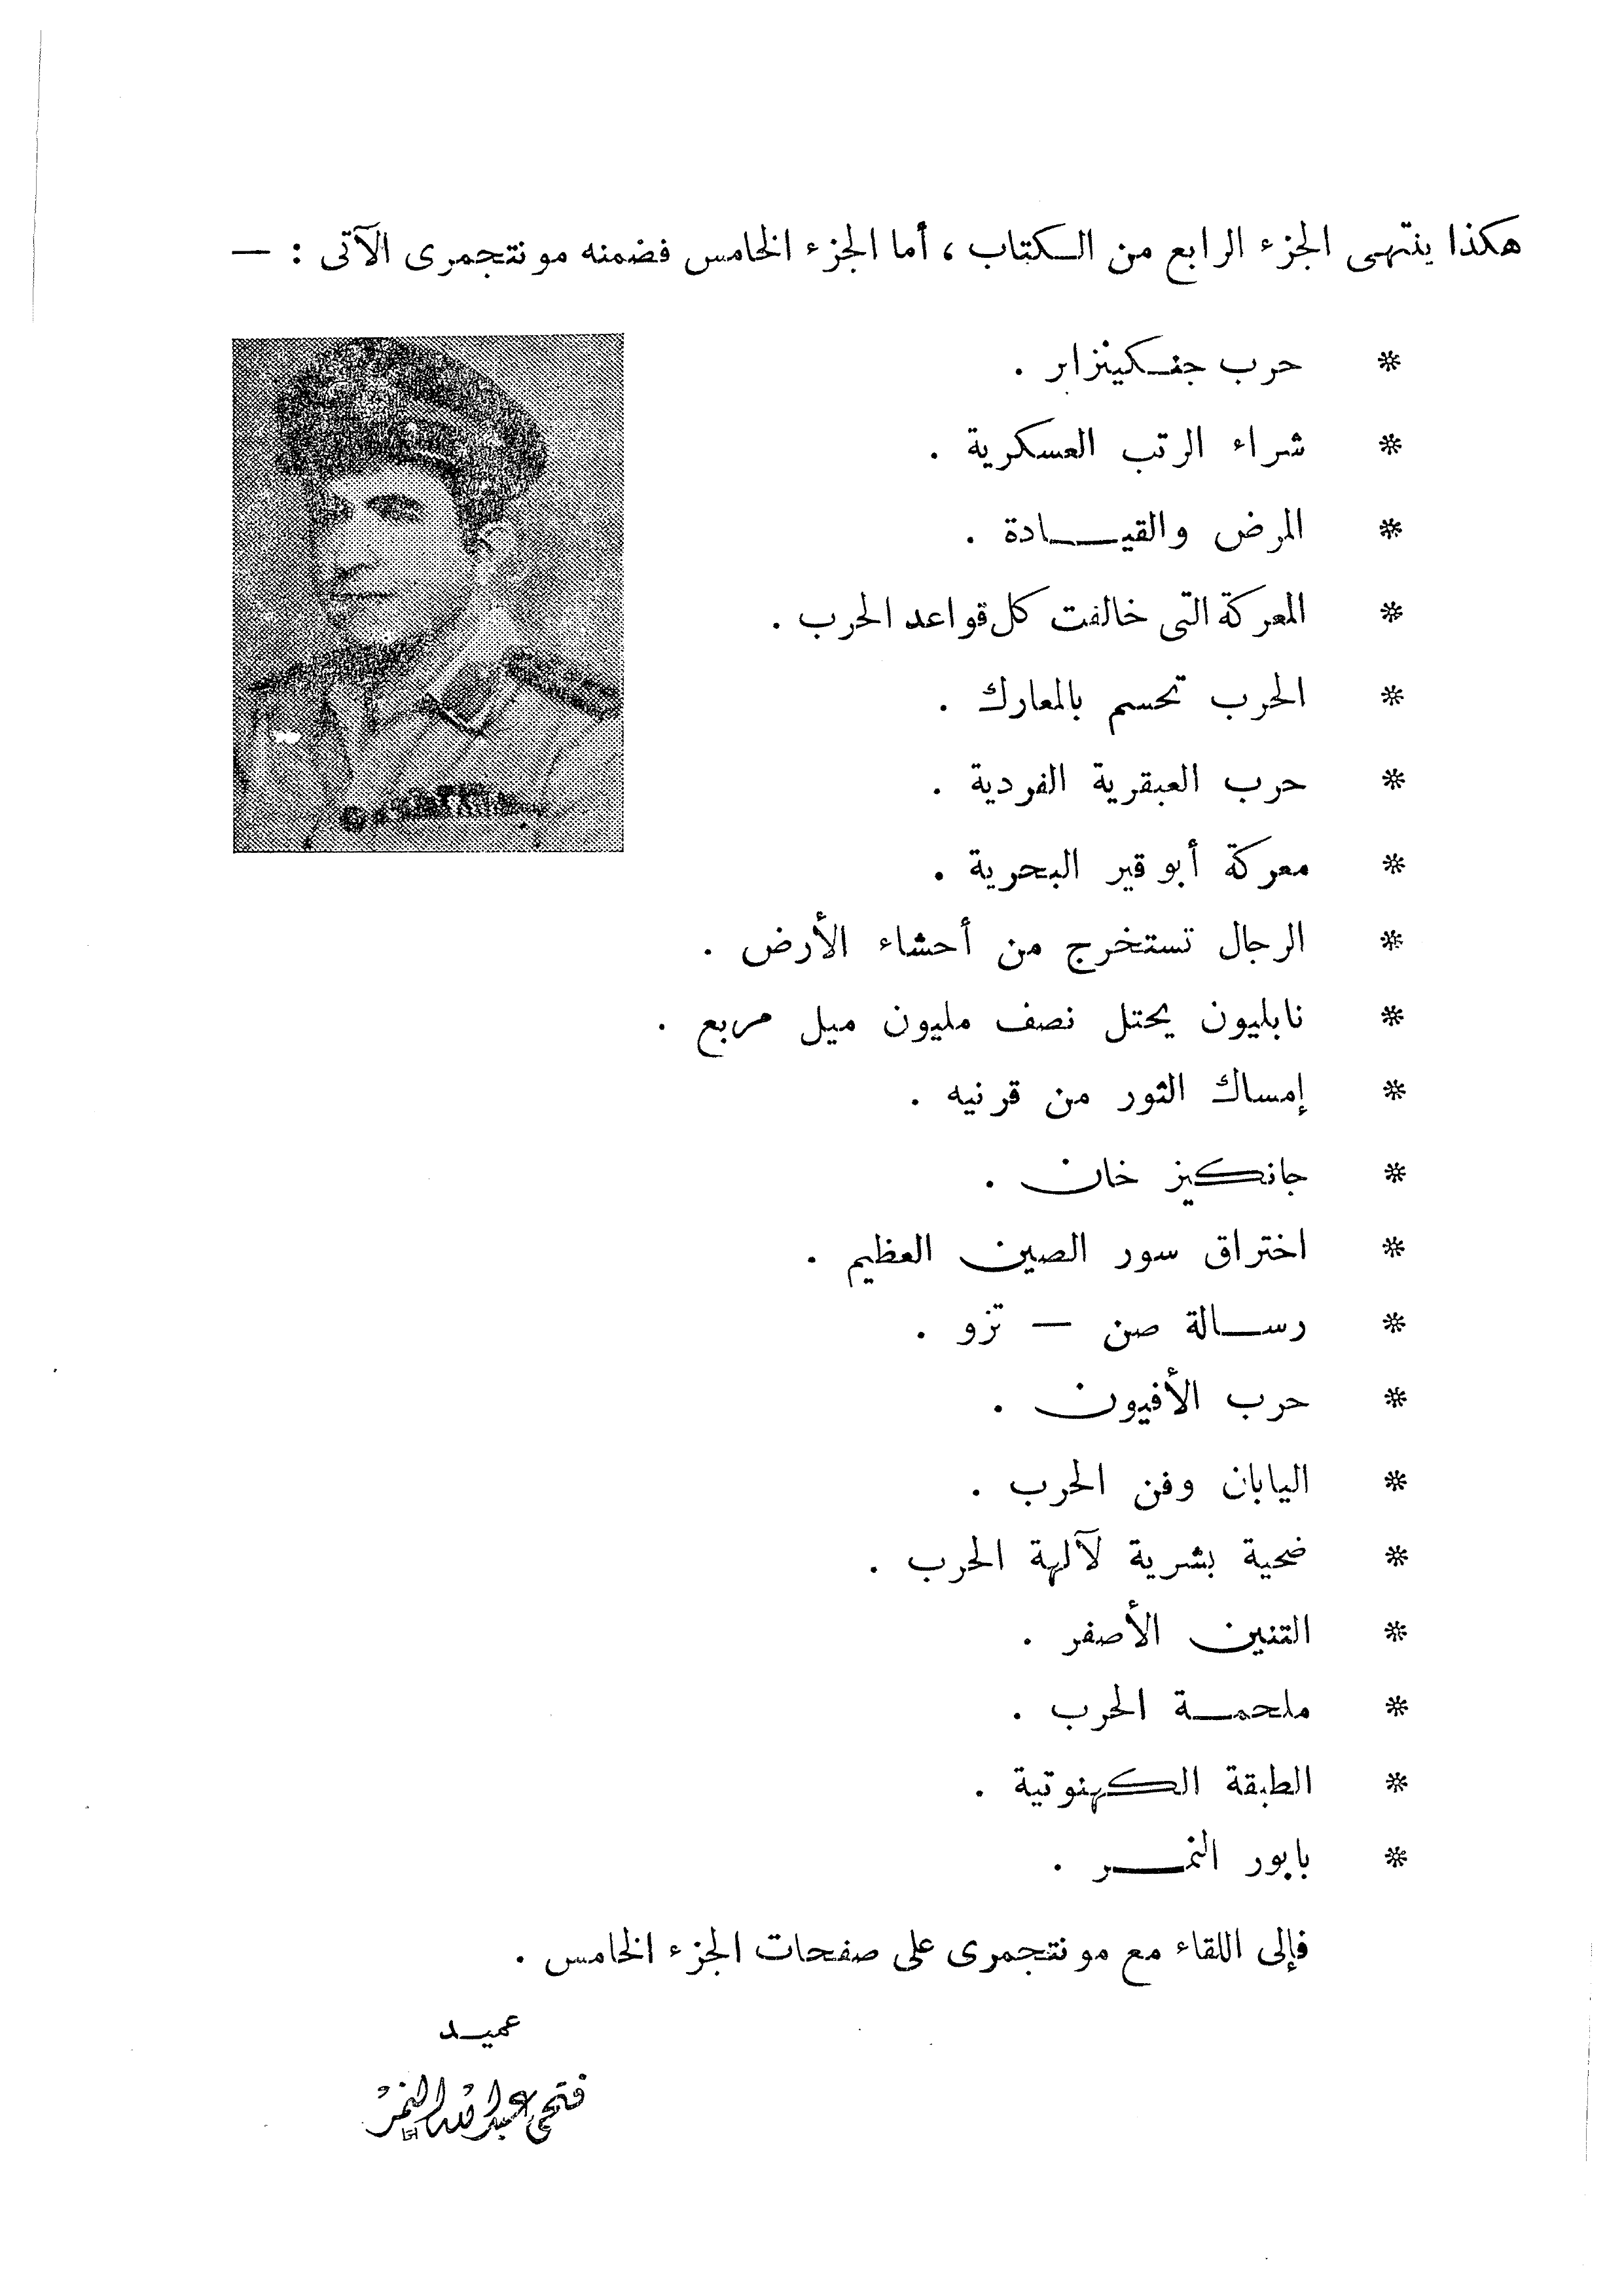 هكذا ينتهى الجزء الرابع من الكتاب ، أما الجزء الخامس فضمنه مونتجمرى الآتى : —
* حرب جنكينزاير .
* شراء الرتب العسكرية .
* المرض والقيادة .
* المعركة التى خالفت كل قواعد الحرب .
* الحرب تحسم بالمعارك .
* حرب العبقرية الفردية .
* معركة أبو قير البحرية .
* الرجال تستخرج من أحشاء الأرض .
* نابليون يحتل نصف مليون ميل مربع .
* إمساك الثور من قرنيه .
* جانكيز خان .
* اختراق سور الصين العظيم .
* رسالة صن — تزو .
* حرب الأفيون .
* اليابان وفن الحرب .
* ضحية بشرية لآلهة الحرب .
* التنين الأصفر .
* ملحمة الحرب .
* الطبقة الكهنوتية .
* بابور النمر .
فإلى اللقاء مع مونتجمرى على صفحات الجزء الخامس .
عميد
فتحى عبد الله النمر